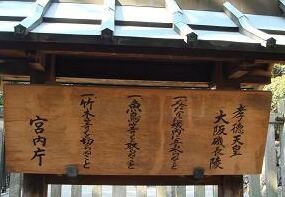 孝徳天皇
大阪磯長陵
一みだりに域内に立入らぬこと
一魚鳥等を取らぬこと
一竹木等を切らぬこと
宮内庁